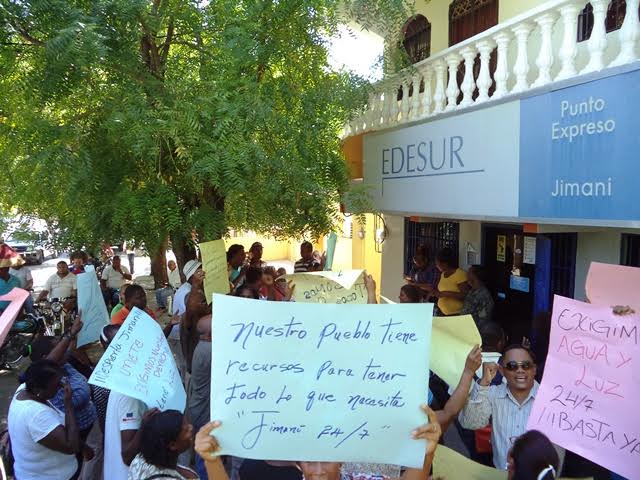 EDESUR
Punto
Expreso
Jimaní
Nuestro Pueblo Tiene
recursos para tener
todo lo que necesita
"Jimaní 24/7"
EXIGIM
AGUA Y
LUZ
24/7
¡¡¡BASTA YA
Jimaní
24/7